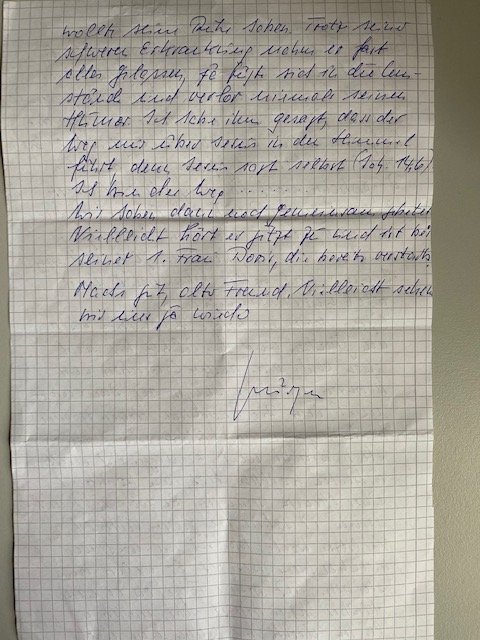 wollte seine Ruhe haben. Trotz seiner
schweren Erkrankung nahm er fast
alles gelassen, ja fügte sich in die Um-
stände und verlor niemals seinen
Humor. Ich habe ihm gesagt, dass der
Weg nur über Jesus in den Himmel
führt, denn Jesus sagt selbst (Joh. 14,6)
Ich bin der Weg .........
Wir haben dann noch gemeinsam gebetet
Vielleicht hört er jetzt zu und ist bei
seiner 1. Frau Doris, die bereits verstarb.
Machs gut, alter Freund. Vielleicht sehen
wir uns ja wieder